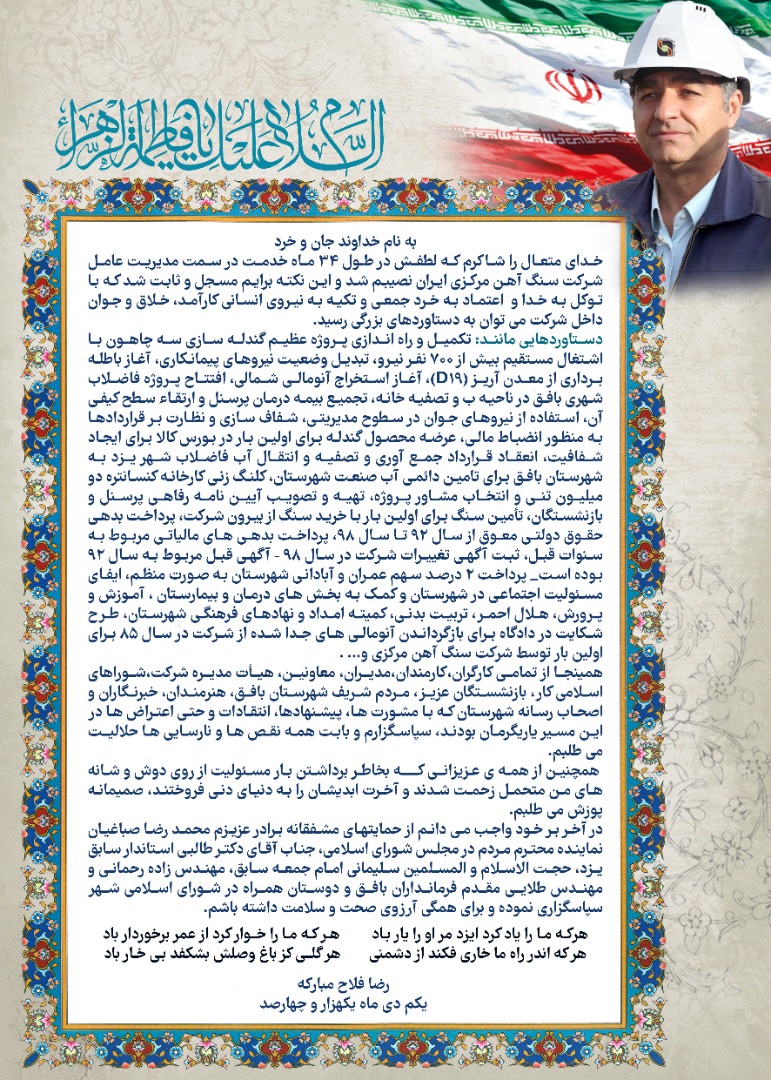 السلام علیک یا فاطمة الزهراء
به نام خداوند جان و خرد
خدای متعال را شاکرم که لطفش در طول ۳۴ ماه خدمت در سمت مدیریت عامل
شرکت سنگ آهن مرکزی ایران نصیبم شد و این نکته برایم مسجل و ثابت شد که با
توکل به خدا و اعتماد به خرد جمعی و تکیه به نیروی انسانی کارآمد، خلاق و جوان
داخل شرکت می توان به دستاوردهای بزرگی رسید.
دستاوردهایی مانند: تکمیل و راه اندازی پروژه عظیم گندله سازی سه چاهون با
اشتغال مستقیم بیش از ۷۰۰ نفر نیرو، تبدیل وضعیت نیروهای پیمانکاری، آغاز باطله
برداری از معدن آریز (D۱۹)، آغاز استخراج آنومالی شمالی، افتتاح پروژه فاضلاب
شهری بافق در ناحیه ب و تصفیه خانه، تجمیع بیمه درمان پرسنل و ارتقاء سطح کیفی
آن، استفاده از نیروهای جوان در سطوح مدیریتی، شفاف سازی و نظارت بر قراردادها
به منظور انضباط مالی، عرضه محصول گندله برای اولین بار در بورس کالا برای ایجاد
شفافیت، انعقاد قرارداد جمع آوری و تصفیه و انتقال آب فاضلاب شهر یزد به
شهرستان بافق برای تامین دائمی آب صنعت شهرستان، کلنگ زنی کارخانه کنسانتره دو
میلیون تنی و انتخاب مشاور پروژه، تهیه و تصویب آیین نامه رفاهی پرسنل و
بازنشستگان، تأمین سنگ برای اولین بار با خرید سنگ از بیرون شرکت، پرداخت بدهی
حقوق دولتی معوق از سال ۹۲ تا سال ۹۸، پرداخت بدهی های مالیاتی مربوط به
سنوات قبل، ثبت آگهی تغییرات شرکت در سال ۹۸ - آگهی قبل مربوط به سال ۹۲
بوده است_ پرداخت ۲ درصد سهم عمران و آبادانی شهرستان به صورت منظم، ایفای
مسئولیت اجتماعی در شهرستان و کمک به بخش های درمان و بیمارستان ، آموزش و
پرورش، هلال احمر، تربیت بدنی، کمیته امداد و نهادهای فرهنگی شهرستان، طرح
شکایت در دادگاه برای بازگرداندن آنومالی های جدا شده از شرکت در سال ۸۵ برای
اولین بار توسط شرکت سنگ آهن مرکزی و... .
همینجا از تمامی کارگران،کارمندان،مدیران، معاونین، هیأت مدیره شرکت،شوراهای
اسلامی کار، بازنشستگان عزیز، مردم شریف شهرستان بافق، هنرمندان، خبرنگاران و
اصحاب رسانه شهرستان که با مشورت ها، پیشنهادها، انتقادات و حتی اعتراض ها در
این مسیر یاریگرمان بودند، سپاسگزارم و بابت همه نقص ها و نارسایی ها حلالیت
می طلبم.
همچنین از همه ی عزیزانی که بخاطر برداشتن بار مسئولیت از روی دوش و شانه
های من متحمل زحمت شدند و آخرت ابدیشان را به دنیای دنی فروختند، صمیمانه
پوزش می طلبم.
در آخر بر خود واجب می دانم از حمایتهای مشفقانه برادر عزیزم محمد رضا صباغیان
نماینده محترم مردم در مجلس شورای اسلامی، جناب آقای دکتر طالبی استاندار سابق
یزد، حجت الاسلام و المسلمین سلیمانی امام جمعه سابق، مهندس زاده رحمانی و
مهندس طلایی مقدم فرمانداران بافق و دوستان همراه در شورای اسلامی شهر
سپاسگزاری نموده و برای همگی آرزوی صحت و سلامت داشته باشم.
هرکه ما را یاد کرد ایزد مر او را یار باد هرکه ما را خوار کرد از عمر برخوردار باد
هرکه اندر راه ما خاری فکند از دشمنی هر گلی کز باغ وصلش بشکفد بی خار باد
رضا فلاح مبارکه
یکم دی ماه یکهزار و چهارصد